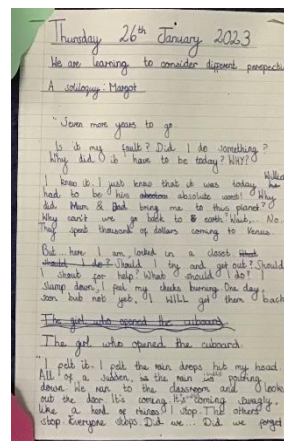 Thursday 26th January 2023
We are learning to consider different perspecti
A soliloquy: Margot
"Seven more years to go.
Is it my fault? Did I do something?
Why did it have to be today? WHY?
I knew it. I just knew that it was today. William
had to be him absolute Why
did Mum & Dad bring me to this planet?
Why can't we go back to earth? Wait... No.
They spent thousand of dollars coming to Venus.
But here I am, locked in a closet.
Should I try and get out? Should
I shout for help? What should I do? I
slump down, I feel my cheeks burning. One day,
soon but not yet, I WILL get them back
The girl who opened the cuboard
The girl who opened the cuboard.
"I felt it. I felt the rain drops hit my head.
All of a sudden, the rain was pouring
down. We ran to the classroom and looks
out the door. It's coming. It's coming savagly,
like a herd of rhinos. I stop. The others
stop. Everyone stops. Did we... Did we forget